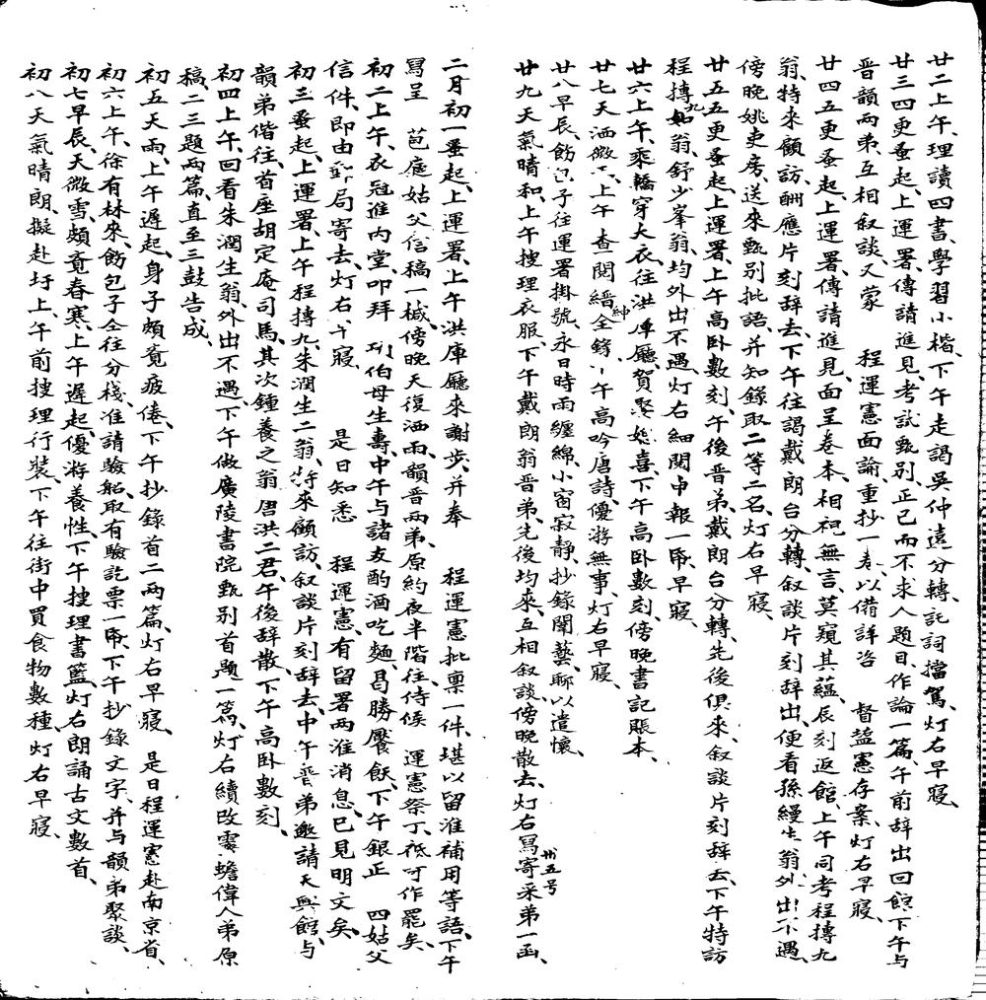 廿二上午、理讀四書、學習小楷、下午走謁吳仲遠分轉、託詞擋駕、灯右早寢、
廿三四更蚤起、上運署、傳請進見、考試甄別、正己而不求人題目、作論一篇、午前辞出回館、下午与
晋韻兩弟互相叙談、又蒙 程運憲面諭、重抄一卷、以備詳咨 督鹽憲存案、灯右早寢、
廿四五更蚤起、上運署、傳請進見、面呈卷本、相視無言、莫窺其蘊、辰刻返館、上午同考程摶九
翁、特來顧訪、酬應片刻辞去、下午往謁戴朗台分轉、叙談片刻辞出、便看孫縵生翁、外出不遇、
傍晚姚吏房、送來甄別批語、并知錄取二等二名、灯右早寢、
廿五五更蚤起、上運署、上午高卧數刻、午後晋弟、戴朗台分轉、先後俱來、叙談片刻辞去、下午特訪
程摶九翁、舒少峯翁、均外出不遇、灯右細閱申報一帋、早寢、
廿六上午、乘轎穿大衣、往洪庫廳賀娶媳喜、下午高卧數刻、傍晚書記賬本、
廿七天洒微雨、上午查閱縉紳全錄、下午高吟唐詩、優游無事、灯右早寢、
廿八早辰、飭包子往運署掛號、永日時雨纏綿、小窗寂靜、抄錄闈藝、聊以遣懷、
廿九天氣晴和、上午搜理衣服、下午戴朗翁晋弟、先後均來、互相叙談、傍晚散去、灯右寫寄采弟一函、卅五号
二月初一蚤起、上運署、上午洪庫廳來謝步、并奉 程運憲批禀一件、堪以留淮補用等語、下午
寫呈 苞庭姑父信稿一槭、傍晚天復洒雨、韻晋兩弟、原約夜半階往、侍候 運憲祭丁、祗可作罷矣、
初二上午、衣冠進內堂叩拜 功伯母生壽、中午与諸友酌酒吃麵、曷勝饜飫、下午銀正 四姑父
信件、即由郵局寄去、灯右早寢 是日知悉 程運憲、有留署兩淮消息、已見明文矣、
初三蚤起、上運署、上午程摶九、朱潤生二翁、特來顧訪、叙談片刻辞去、中午晋弟邀請天興館、与
韻弟偕往、首座胡定庵司馬、其次鍾養之翁、唐洪二君、午後辞散、下午高卧數刻、
初四上午、回看朱潤生翁、外出不遇、下午做廣陵書院甄別首題一篇、灯右續改雲蟾偉人弟原
稿、二三題兩篇、直至三鼓告成、
初五天雨、上午遲起、身子頗覺疲倦、下午抄錄首二兩篇、灯右早寢、 是日程運憲赴南京省、
初六上午、徐有林來、飭包子仝往分棧、准請驗船、取有驗訖票一帋、下午抄錄文字、并与韻弟聚談、
初七早辰、天微雪、頗覺春寒、上午遲起、優游養性、下午搜理書籃、灯右朗誦古文數首、
初八天氣晴朗、擬赴圩上、午前搜理行裝、下午往街中買食物數種、灯右早寢、